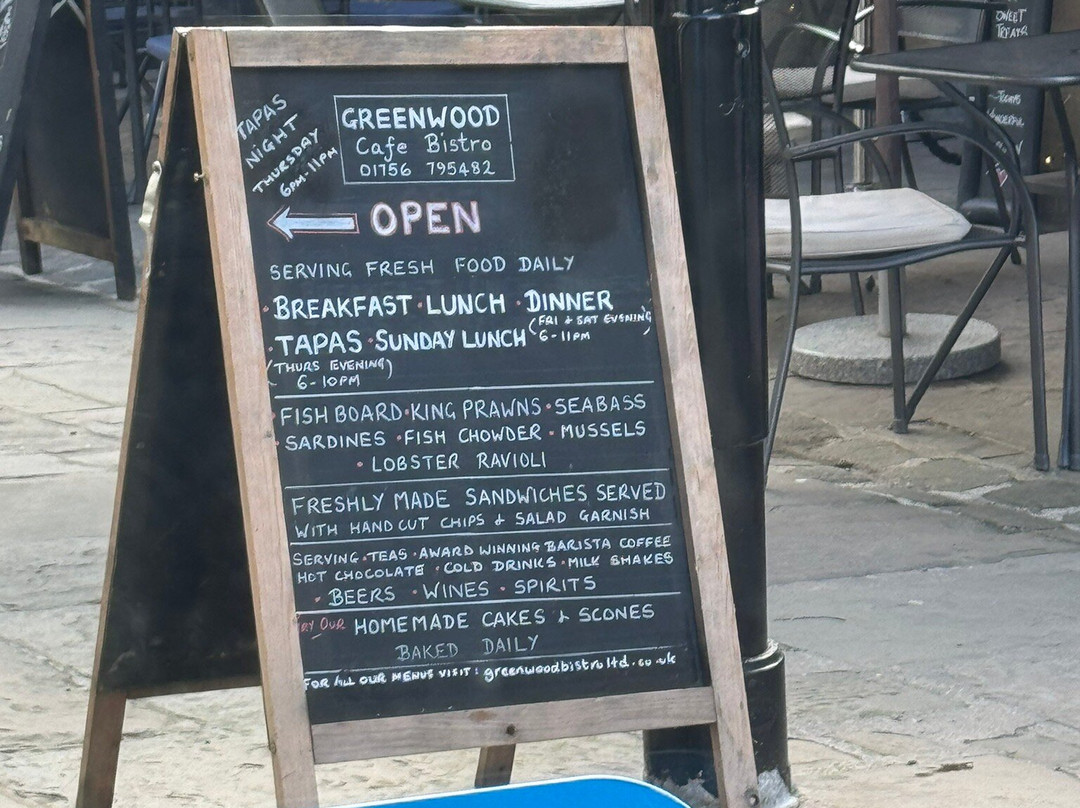 TAPAS
NIGHT
THURSDAY
6PM-11PM
GREENWOOD
Cafe Bistro
01756 795482
OPEN
SERVING FRESH FOOD DAILY
• BREAKFAST • LUNCH • DINNER
(FRI & SAT EVENING)
6-11PM
• TAPAS • SUNDAY LUNCH
(THURS EVENING)
6-10PM
• FISH BOARD • KING PRAWNS • SEABASS
• SARDINES • FISH CHOWDER • MUSSELS
• LOBSTER RAVIOLI
FRESHLY MADE SANDWICHES SERVED
WITH HAND CUT CHIPS & SALAD GARNISH
SERVING • TEAS • AWARD WINNING BARISTA COFFEE
HOT CHOCOLATE • COLD DRINKS • MILK SHAKES
• BEERS • WINES • SPIRITS
TRY OUR HOMEMADE CAKES & SCONES
BAKED DAILY
FOR ALL OUR MENUS VISIT : greenwoodbistroltd.co.uk
SWEET
TREATS